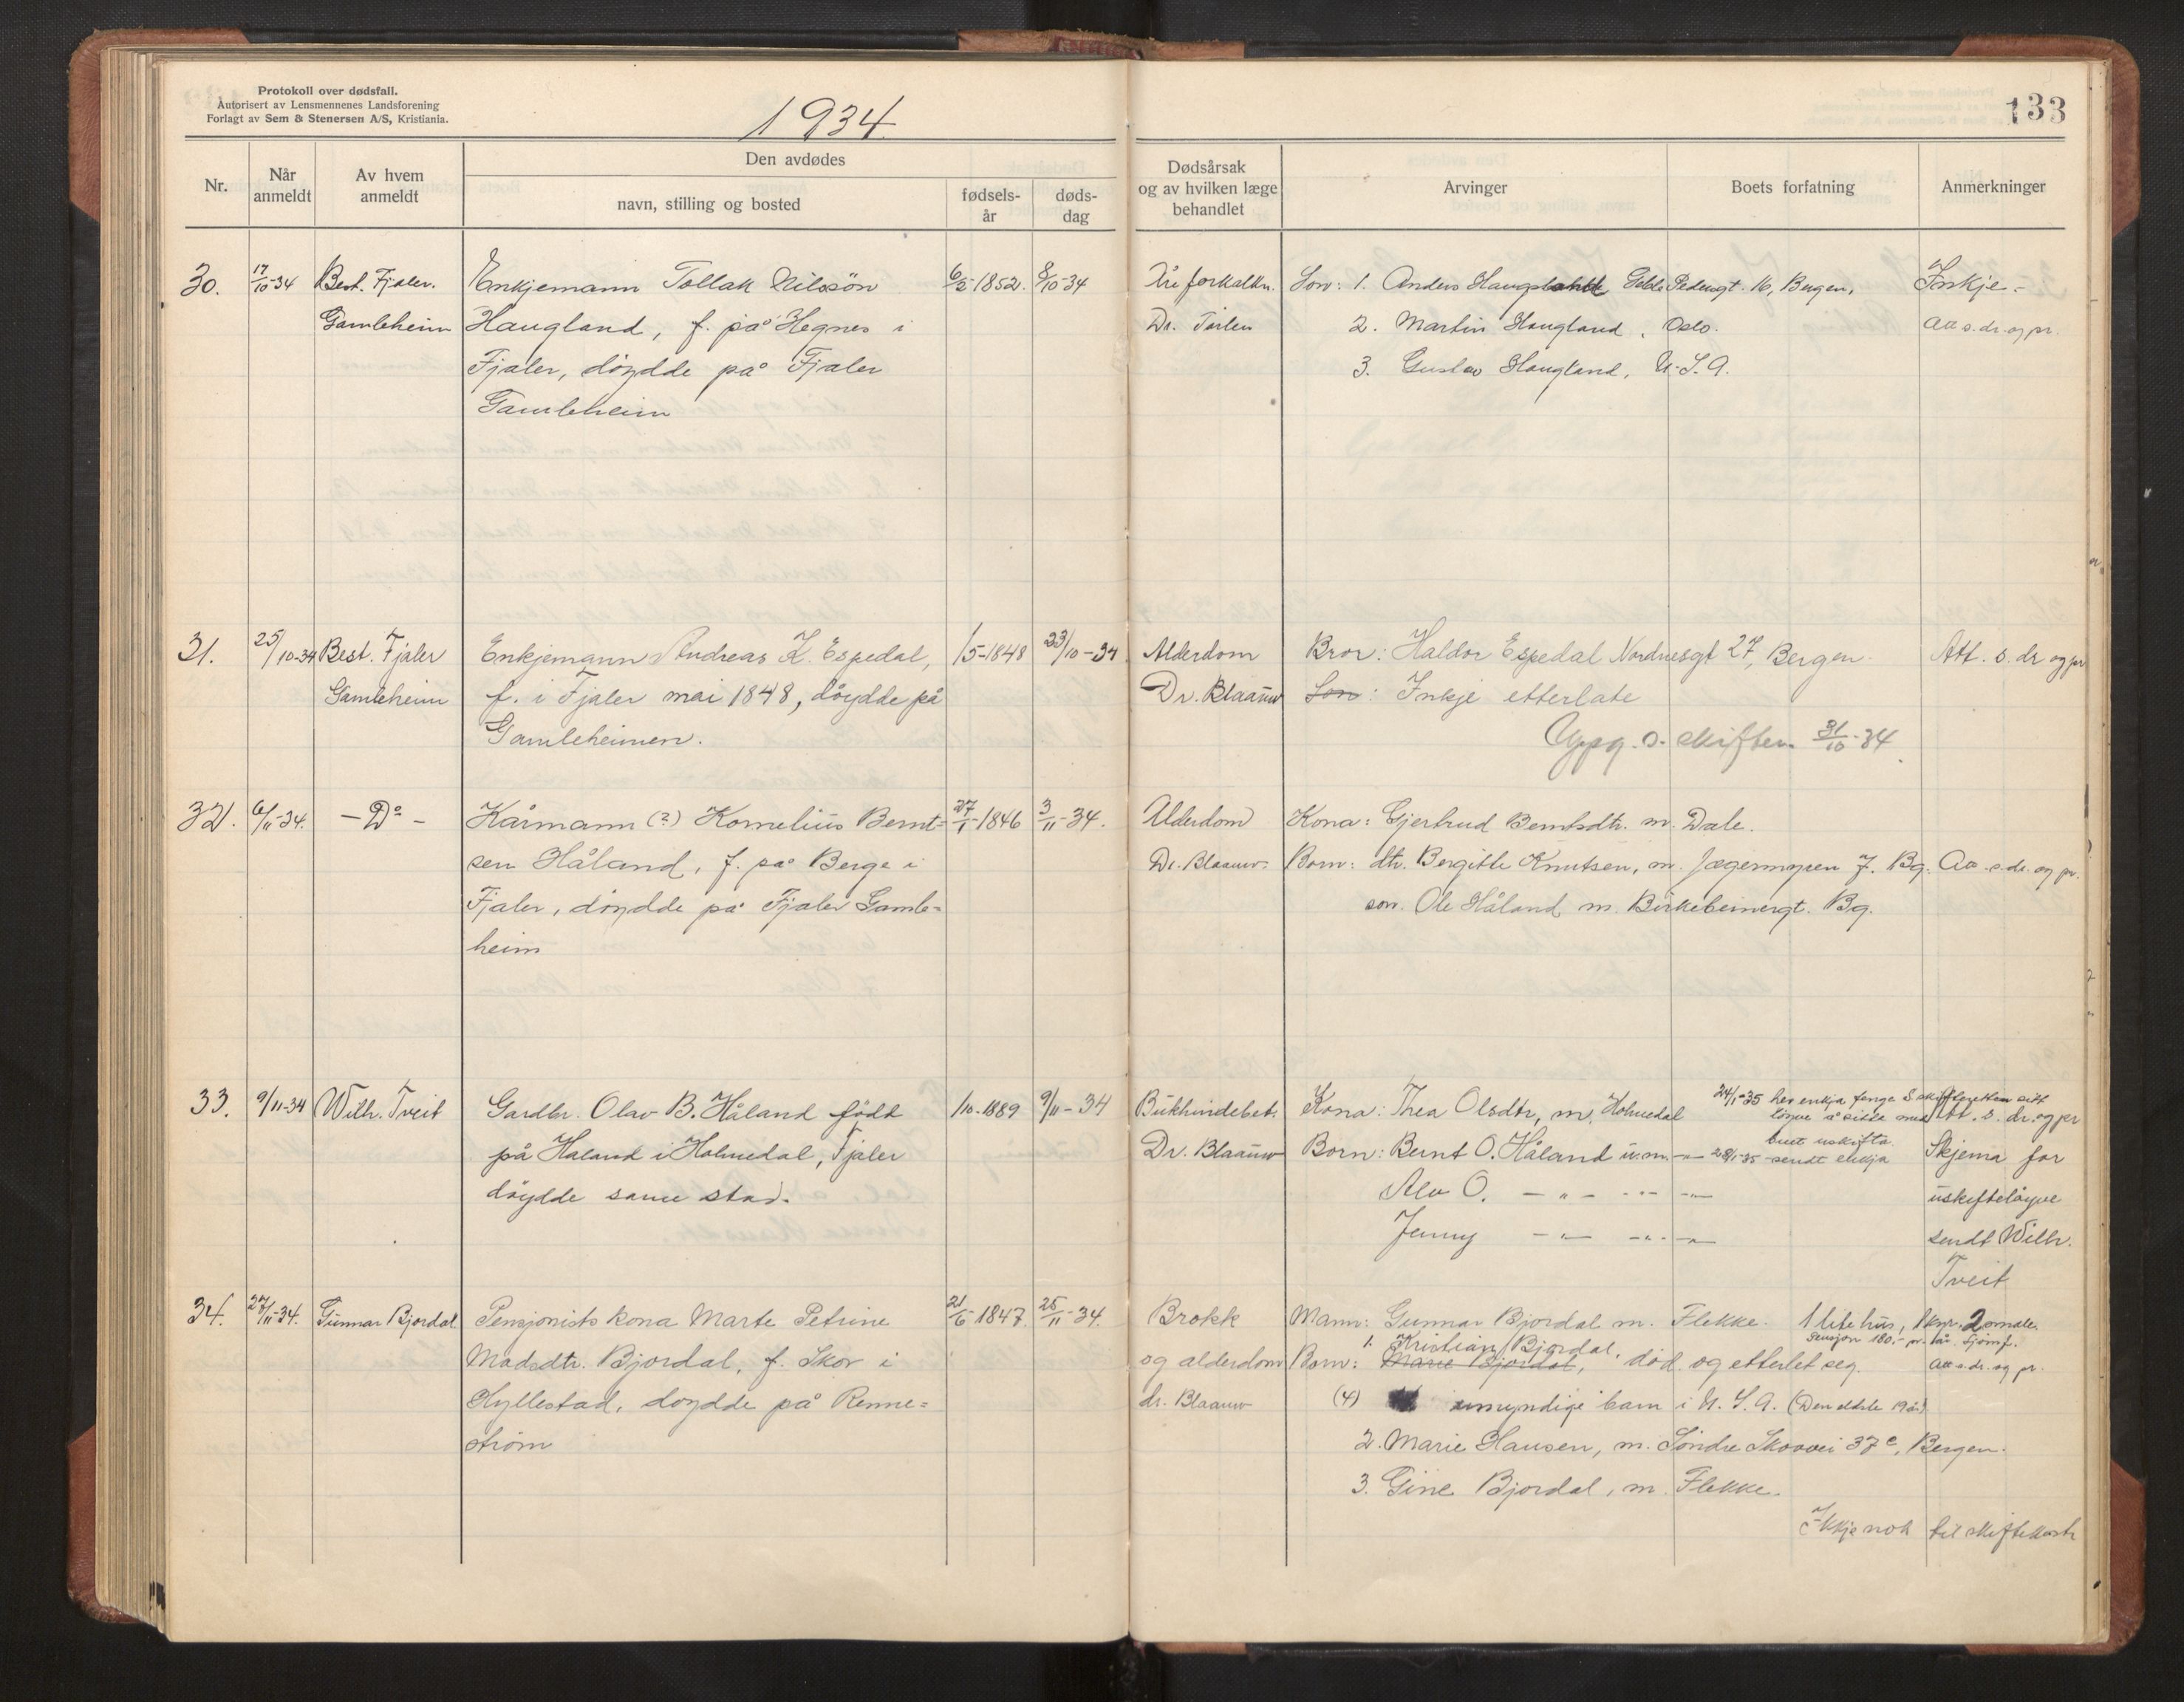 Protokoll over dødsfall.
Autorisert av Lensmennenes Landsforening
Forlagt av Sem & Stenersen A/S, Kristiania.
1934
133
Nr.
Når anmeldt
Av hvem anmeldt
Den avdødes
navn, stilling og bosted
fødsels-år
døds-dag
Dødsårsak og av hvilken læge behandlet
Arvinger
Boets forfatning
Anmerkninger
30. 17/10-34 Best. Fjaler. Enkjemann Tollak Nilssön 6/5-1852. 8/10-34 forkalkn. Son: 1. Anders Pedersgt. 16, Bergen. Inkje -
Gamleheim Haugland, f. på Hegnes i Dr. 2. Martin Haugland, Oslo. Att s. dr. og pr.
Fjaler, döydde på Fjaler 3. Gustav Haugland, U.S.A.
Gamleheim
31. 25/10-34 Best. Fjaler Enkjemann Andreas K. Espedal, /5-1848 23/10-34 Alderdom Bror: Haldor Espedal Nordnesgt 27, Bergen. Att. s. dr og pr
Gamleheim f. i Fjaler mai 1848, döydde på Dr. Blaauw Son: Inkje etterlate
Gamleheimen. Oppg. s. skifter. 31/10-34
32. 6/11-34. - Do - Kårmann (?) Kornelius Bernt- 27/1-1846 3/11-34. Alderdom Kona: Gjertrud Berntsdtr. m. Dale.
sen Håland, f. på Berge i Dr. Blaauw. Born: dtr. Bergitte Knutsen, m. Jægermyren 7. Bg. Att s. dr. og pr.
Fjaler, döydde på Fjaler Gamle- son. Ole Håland m. Birkebeinergt. Bg.
heim
33. 9/11-34 Wilh. Tveit Gardbr. Olav B. Håland födt /10-1889 9/11-34 Bukhindebet. Kona: Thea Olsdtr, m. Holmedal 24/1-35 hev enkja fenge S skifteretten sitt
löyve å sitte med Att. s. dr. og pr
buet uskifta.
på Håland i Holmedal, Fjaler Dr. Blaauw Born: Bernt O. Håland u.m. -"- 28/1-35 sendt enkja Skjema for
döydde same stad. Alv O. -"- -"- -"- uskiftelöyve
Jenny -"- -"- -"- sendt Wilh.
Tveit
34. 27/11-34. Gunnar Bjordal Pensjonists kona Marte Petrine 21/6-1847. 25/11-34. Brokk Mann: Gunnar Bjordal m. Flekke. 1 lite hus, 1 kyr. 2 smale.
1. Kristian Bjordal. pensjon 180,- pr. år
Madsdtr. Bjordal, f. Skor i og alderdom Born: Marie Bjordal, död og etterlet seg. Att s. dr. og pr.
Hyllestad, doydde på Renne- dr. Blaauw (4) umyndige barn i U.S.A. (Den eldste 19 år)
ström 2. Marie Hansen, m. Söndre Skogvei 37c, Bergen.
3. Gine Bjordal, m. Flekke.
Ikkje nok til skiftekostn